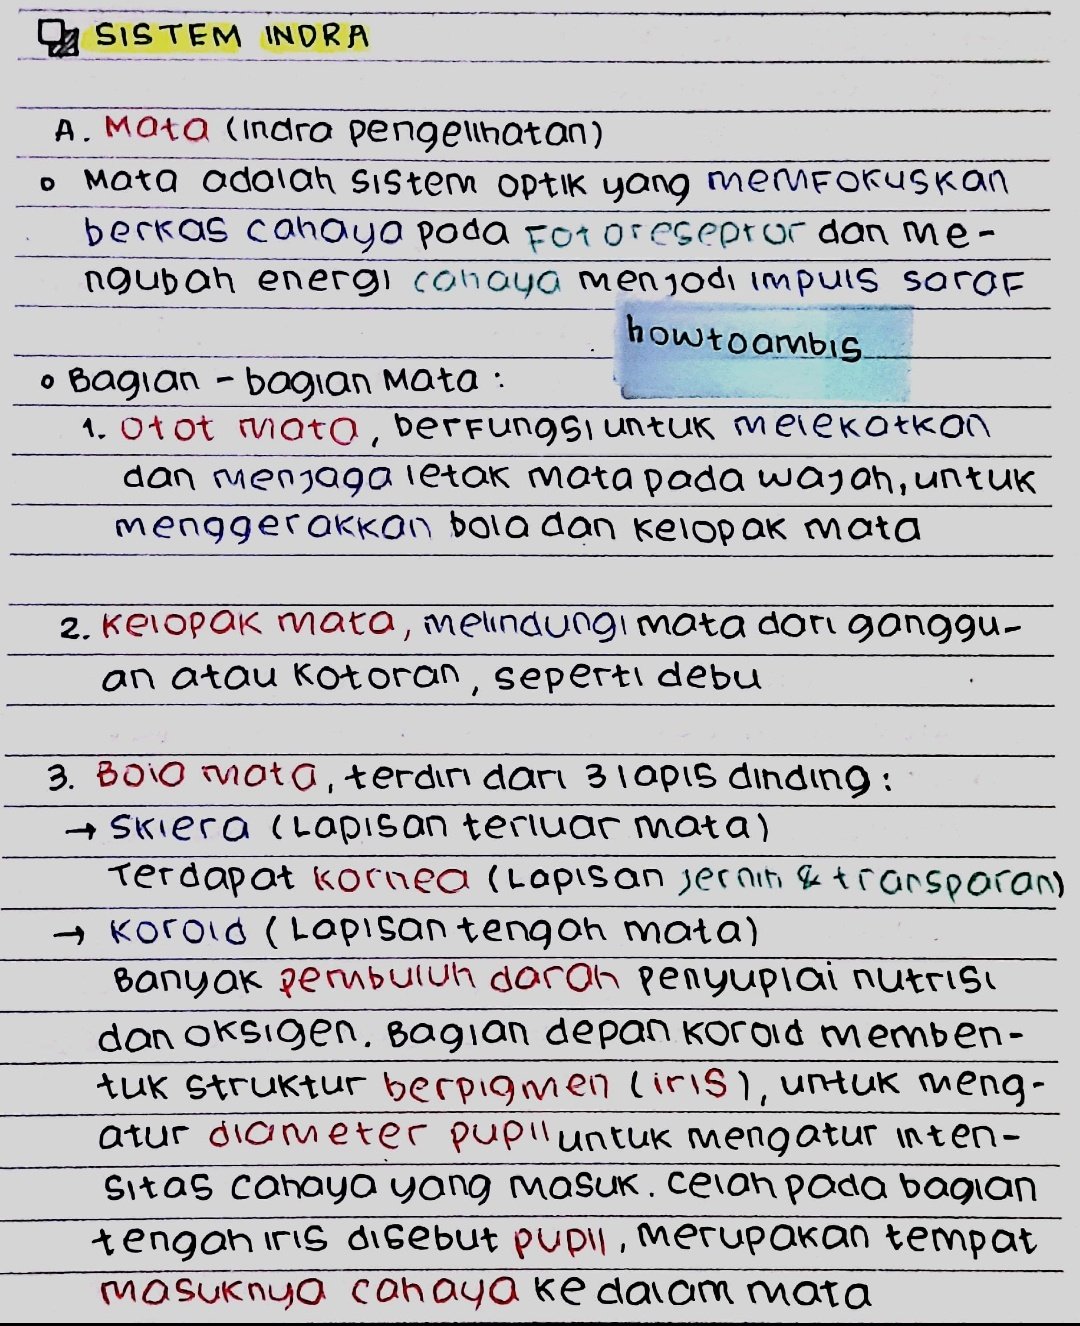 SISTEM INDRA
A. Mata (Indra pengelihatan)
Mata adalah sistem optik yang memfokuskan
berkas cahaya pada fotoreseptor dan me-
ngubah energi cahaya menjadi impuls saraf
howtoambis
Bagian - bagian Mata :
1. Otot mata, berfungsi untuk melekatkan
dan menjaga letak mata pada wajah, untuk
menggerakkan bola dan kelopak mata
2. Kelopak mata, melindungi mata dari ganggu-
an atau kotoran, seperti debu
3. Bola mata, terdiri dari 3 lapis dinding :
→ Sklera (Lapisan terluar mata)
Terdapat kornea (Lapisan jernih & transparan)
→ Koroid (Lapisan tengah mata)
Banyak pembuluh darah penyuplai nutrisi
dan oksigen. Bagian depan koroid memben-
tuk struktur berpigmen (iris), untuk meng-
atur diameter pupil untuk mengatur inten-
sitas cahaya yang masuk. Celah pada bagian
tengah iris disebut pupil, merupakan tempat
masuknya cahaya ke dalam mata